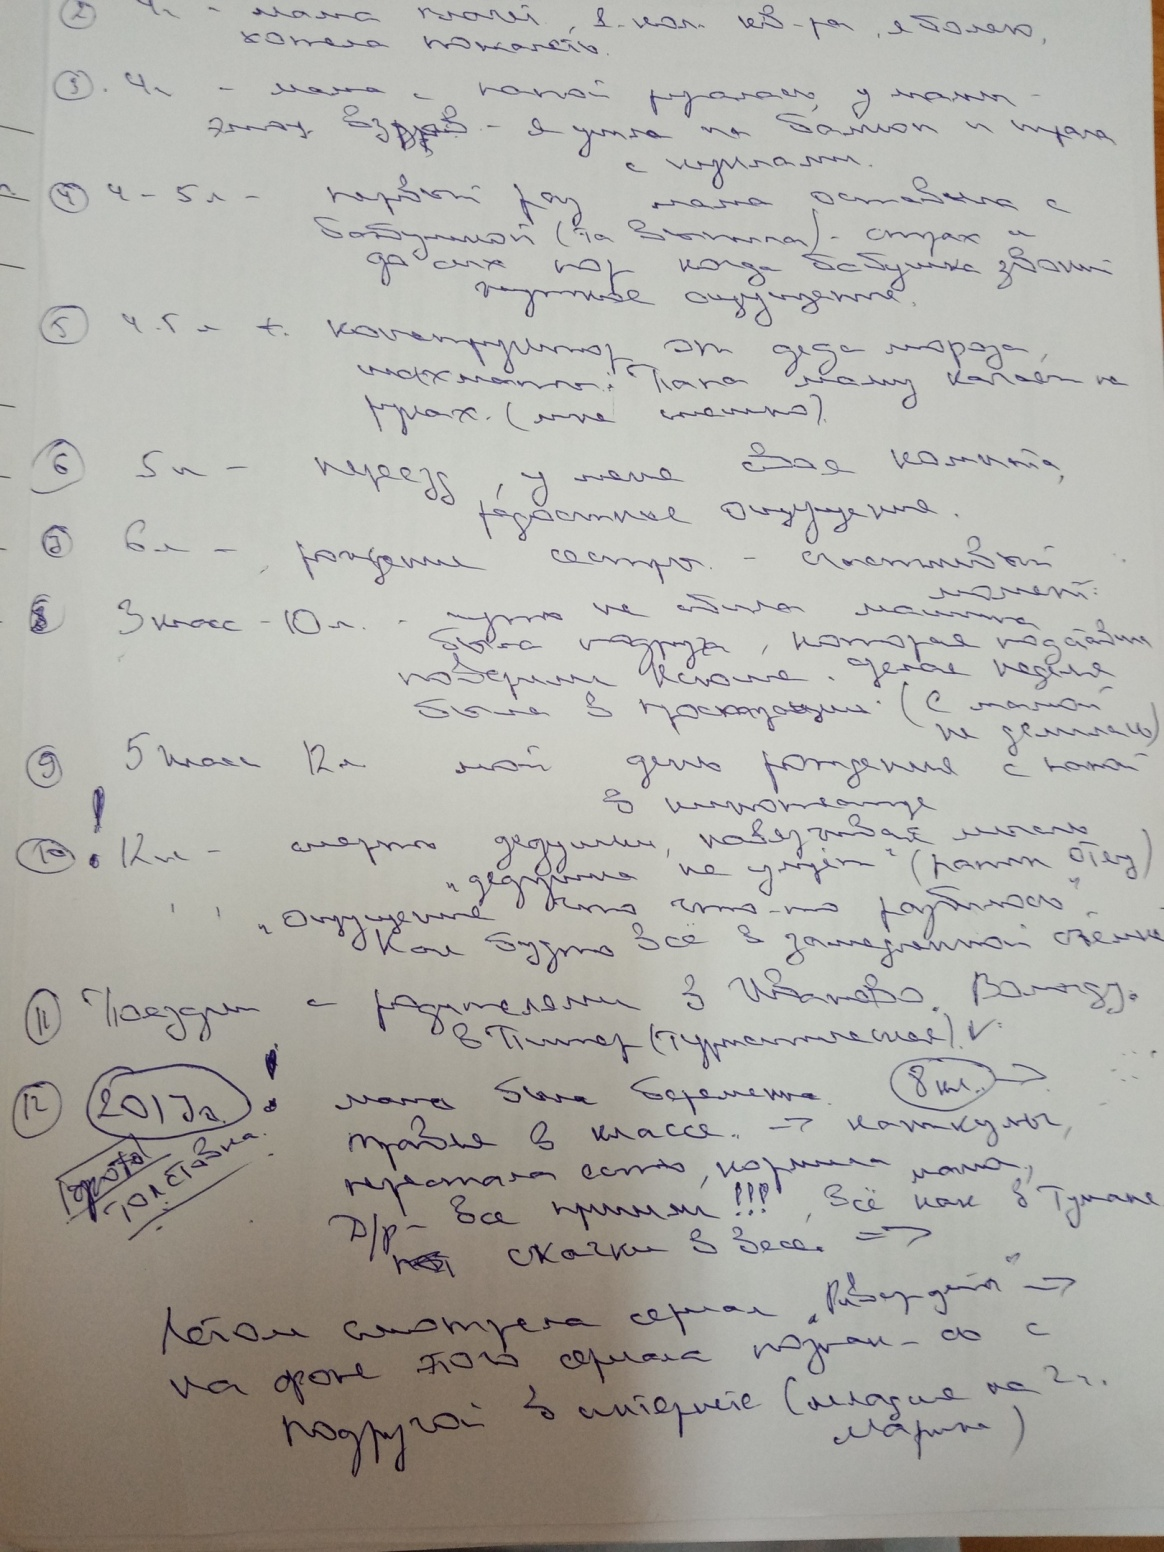 ② 4г - мама плачет, 1-ком. кв-ра, я болею,
хотела пожалеть.
③. 4г - мама с папой ругались, у мамы -
эмоц. взрыв - я ушла на балкон и играла
с куклами.
④ 4-5л - первый раз мама оставила с
бабушкой (та выпила) - страх и
до сих пор когда бабушка звонит
ощущение.
⑤ 4-5л +. конструктор от деда мороза,
шахматы. Папа маму качает на
руках. (мне смешно).
⑥ 5л - переезд, у меня своя комната,
радостное ощущение.
⑦ 6л - рождение сестры. - счастливый
момент.
8 3 класс - 10л. - чуть не сбила машина
была подруга, которая
поверили Ксюше. неделя
была в прострации. (С мамой
не делилась)
⑨ 5 класс 12л мой день рождения с папой
в кинотеатре
⑩ ! 12л - смерть дедушки, навязчивая мысль
"дедушка не умрёт" (папин отец)
"ощущение что что-то разбилось"
Как будто всё в замедленной съёмке
⑪ Поездки с родителями в Иваново. Вологду.
в Питер (туристические). V
⑫ 2017г. ! мама была беременна. 8 кл. →
травля в классе. → каникулы,
перестала есть, кормила мама,
Д/р - все пришли!!!, всё как в тумане
скачки в весе. =>
Летом смотрела сериал "Ривердейл" →
на фоне этого сериала познак-сь с
подругой в интернете (младше на 2 г.
Марина)